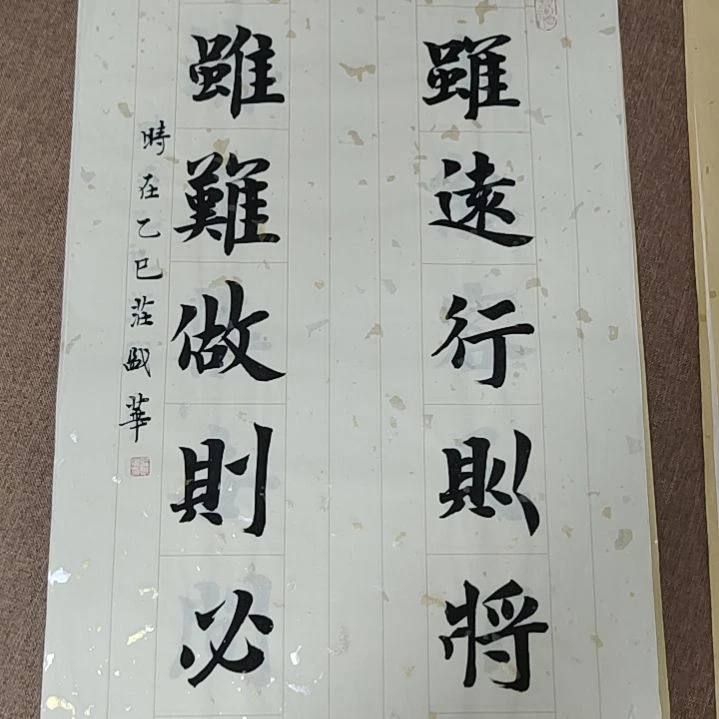 雖遠行則將
雖難做則必
時在乙巳莊
華